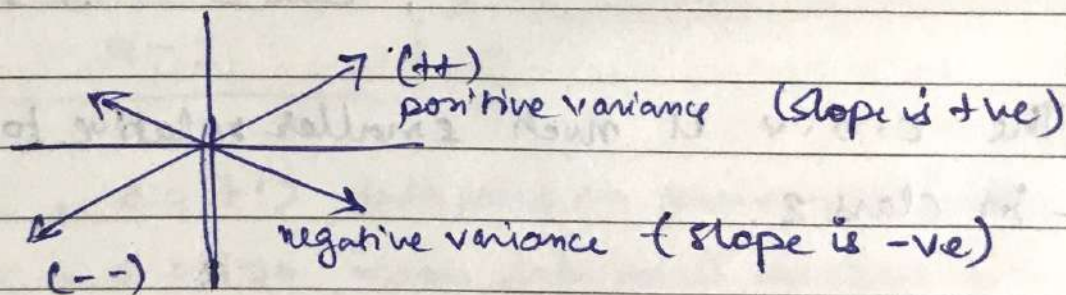 (++)
positive variance (slope is +ve)
negative variance (slope is -ve)
(--)